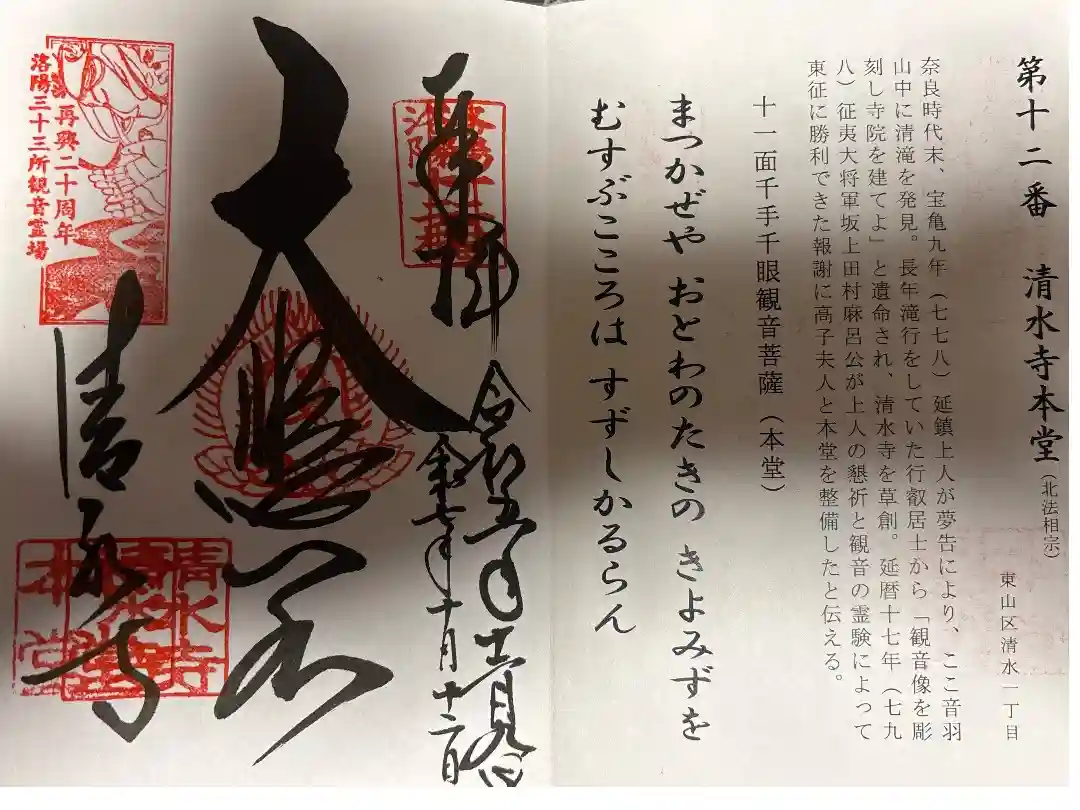 第十二番　清水寺本堂（北法相宗）
東山区清水一丁目
奈良時代末、宝亀九年（七七八）延鎮上人が夢告により、ここ音羽
山中に清滝を発見。長年滝行をしていた行叡居士から「観音像を彫
刻し寺院を建てよ」と遺命され、清水寺を草創。延暦十七年（七九
八）征夷大将軍坂上田村麻呂公が上人の懇祈と観音の霊験によって
東征に勝利できた報謝に高子夫人と本堂を整備したと伝える。
十一面千手千眼観音菩薩（本堂）
まつかぜや おとわのたきの きよみずを
むすぶこころは すずしかるらん
奉拝
令和五年
令和七年十月
大悲閣
再興二十周年
洛陽三十三所観音霊場
清水寺
清水寺
本堂